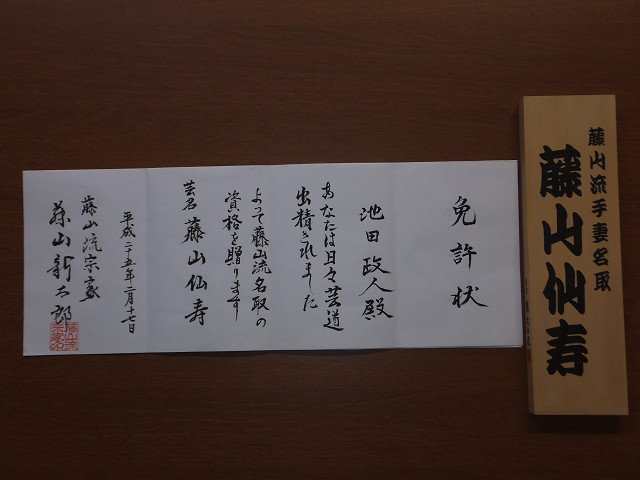 藤山流手妻名取
藤山仙寿
免許状
池田政人殿
あなたは日々芸道に
出精されました
よって藤山流名取の
資格を贈ります
芸名 藤山仙寿
平成二十五年二月十七日
藤山流宗家
藤山新太郎